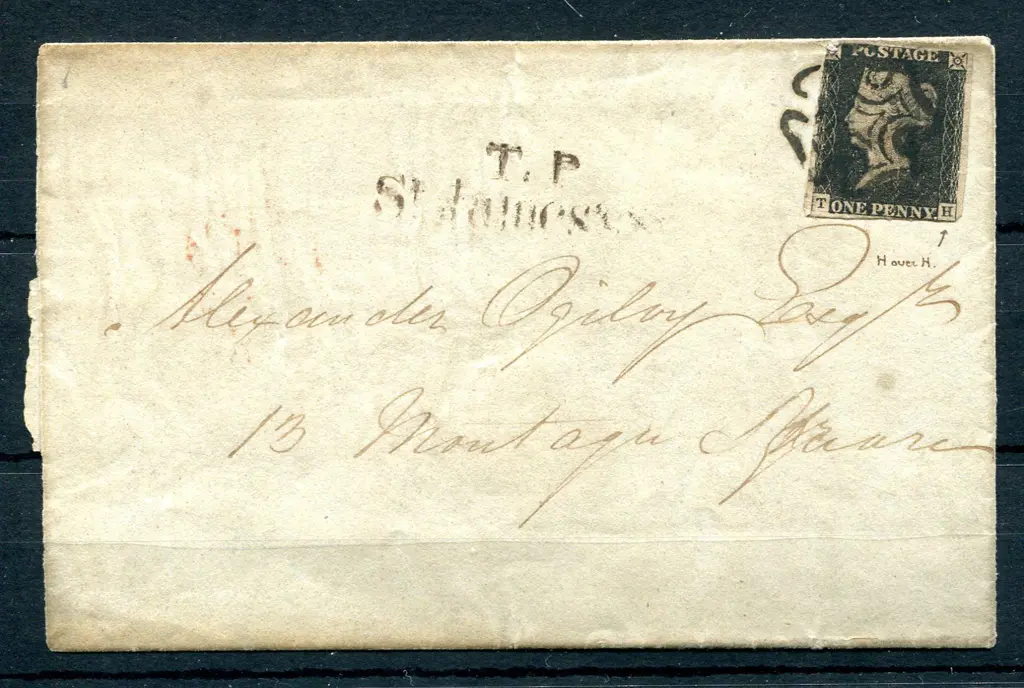 POSTAGE
T ONE PENNY H
H over H.
T.P
St James's
Alexander Ogilvy Esqr
13 Montagu Square